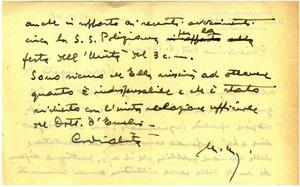 anche in rapporto ai recenti avvenimenti
circa la S. S. Poligrafica
festa dell'Unità del 3 c.m.
Sono sicuro che Ella riuscirà ad ottenere
quanto è indispensabile e che è stato
richiesto con l'unita relazione ufficiale
del Dott. D'
Cordialità